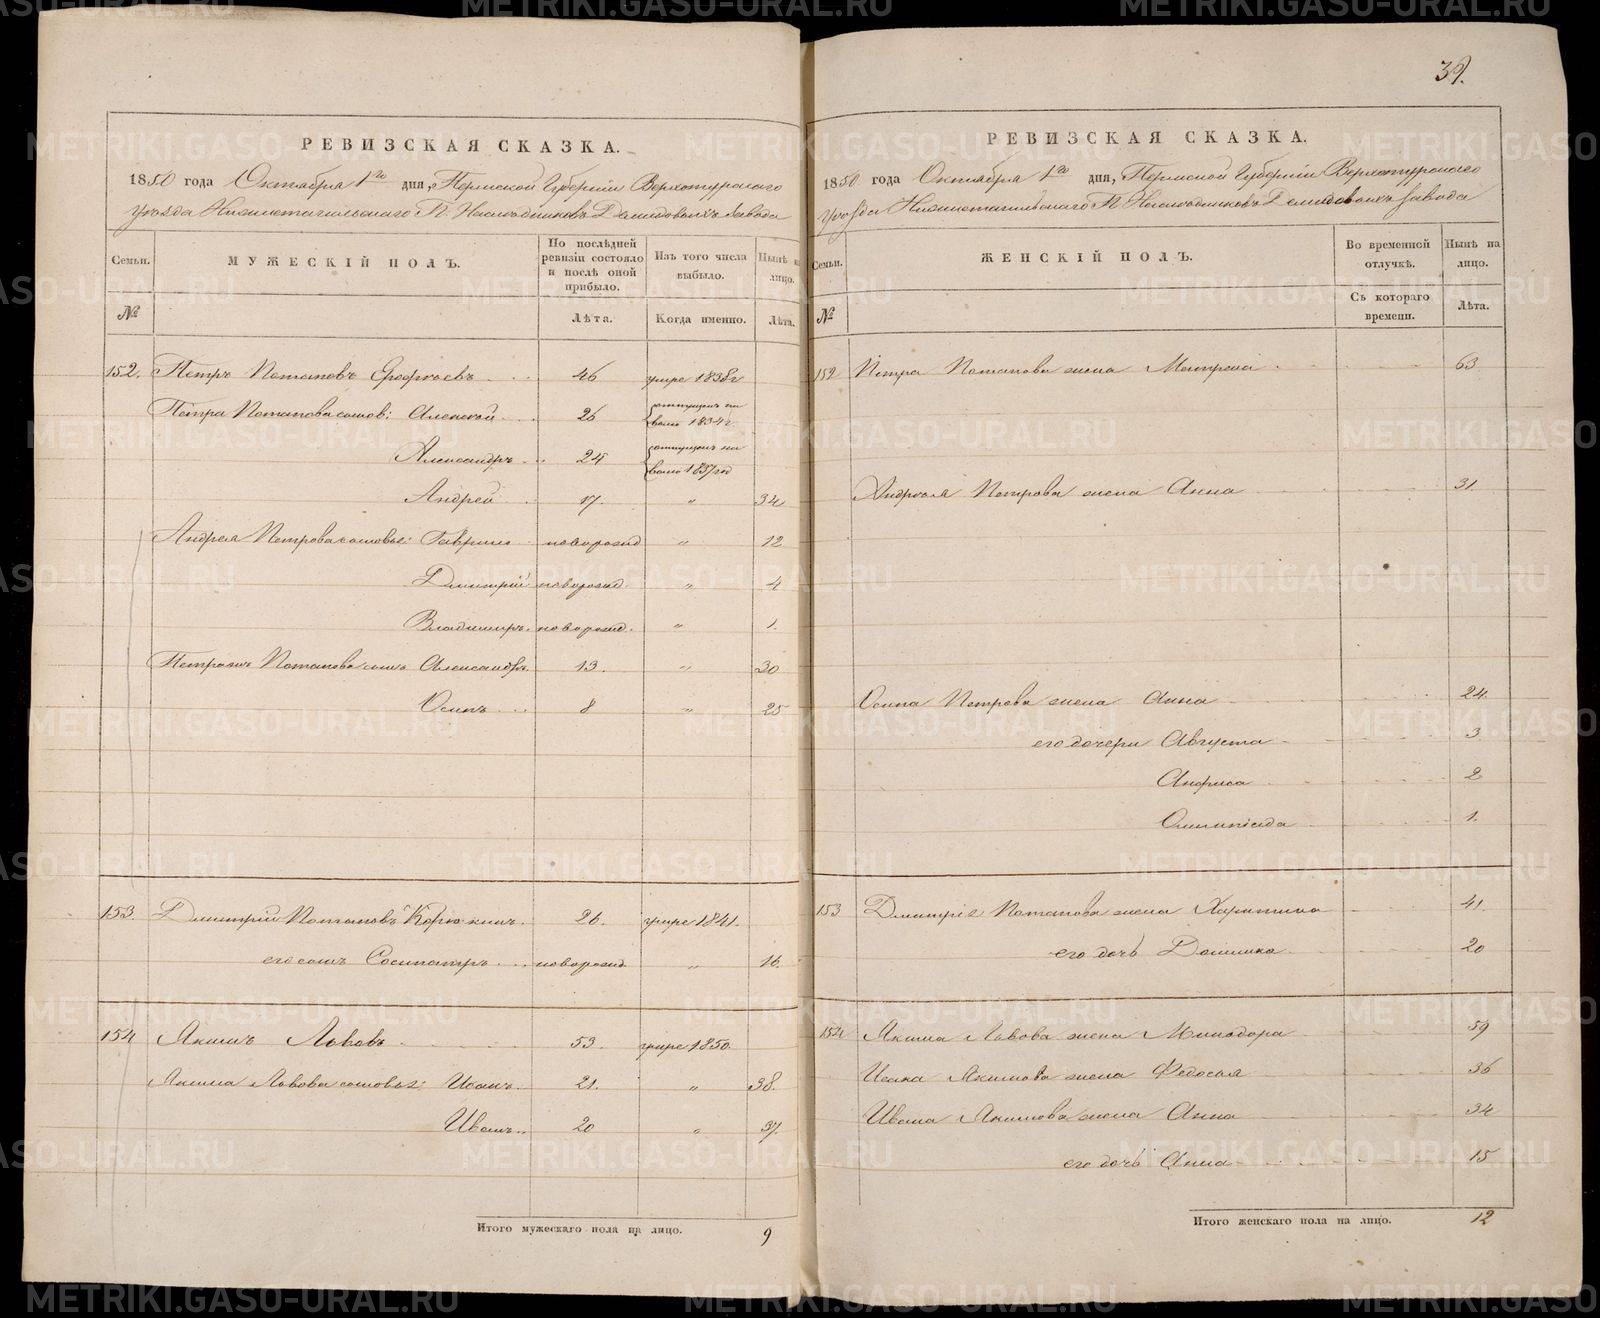 РЕВИЗСКАЯ СКАЗКА.
1850 года Октября 1го дня, Пермской Губернiи Верхотурскаго
Уѣзда Нижнетагильскаго П. Наслѣдниковъ Демидовыхъ завода
Семьи. МУЖЕСКIЙ ПОЛЪ. По послѣдней ревизiи состояло и послѣ оной прибыло. Изъ того числа выбыло. Нынѣ на лицо.
№ Лѣта. Когда именно. Лѣта.
152. Петръ Потаповъ Ерофѣевъ 46 умре 1838г
Петра Потапова сыновья: Алексѣй 26 отпущенъ на волю 1834г
Александръ 24 отпущенъ на волю 1837год
Андрей 17. „ 34
Андрея Петрова сыновья: Гаврило новорожд „ 12
Дмитрiй новорожд. „ 4
Владимиръ. новорожд. „ 1.
Потапова сынъ Александръ 13. „ 30
Осипъ 8 „ 25
153. Дмитрiй Потаповъ Корюкинъ. 26. умре 1841.
его сынъ Сосипатръ новорожд „ 16.
154 Якимъ Львовъ 53. умре 1850.
Якима Львова сыновья: Исакъ 21. „ 38.
Иванъ 20 „ 37.
Итого мужескаго пола на лицо. 9
39.
РЕВИЗСКАЯ СКАЗКА.
1850 года Октября 1го дня, Пермской Губернiи Верхотурскаго
Уѣзда Нижнетагильскаго П. Наслѣдниковъ Демидовыхъ завода
Семьи. ЖЕНСКIЙ ПОЛЪ. Во временной отлучкѣ. Нынѣ на лицо.
№ Съ котораго времени. Лѣта.
152 Петра Потапова жена Матрена 63
Андрея Петрова жена Анна 31.
Осипа Петрова жена Анна 24.
его дочери Августа 3
Анфиса 2
Олимпiада 1.
153 Дмитрiя Потапова жена Харитина 41.
его дочь Домника 20
154 Якима Львова жена Минодора 59
Исака Якимова жена Федосья 36
Ивана Якимова жена Анна 34
его дочь Анна 15
Итого женскаго пола на лицо. 12
METRIKI.GASO-URAL.RU